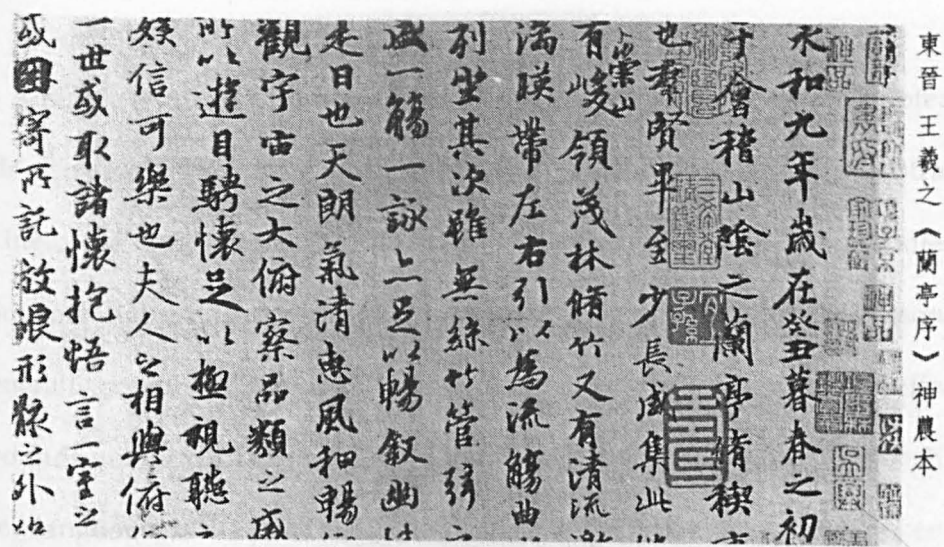 東晉 王羲之《蘭亭序》神農本
永和九年歲在癸丑暮春之初
于會稽山陰之蘭亭脩禊
也羣賢畢至少長咸集此
崇山
有峻領茂林脩竹又有清流
湍暎帶左右引以為流觴曲
列坐其次雖無絲竹管弦之
盛一觴一詠亦足以暢敘幽
是日也天朗氣清惠風和暢
觀宇宙之大俯察品類之盛
所以遊目騁懷足以極視聽之
娛信可樂也夫人之相與俯
一世或取諸懷抱悟言一室之
或因寄所託放浪形骸之外